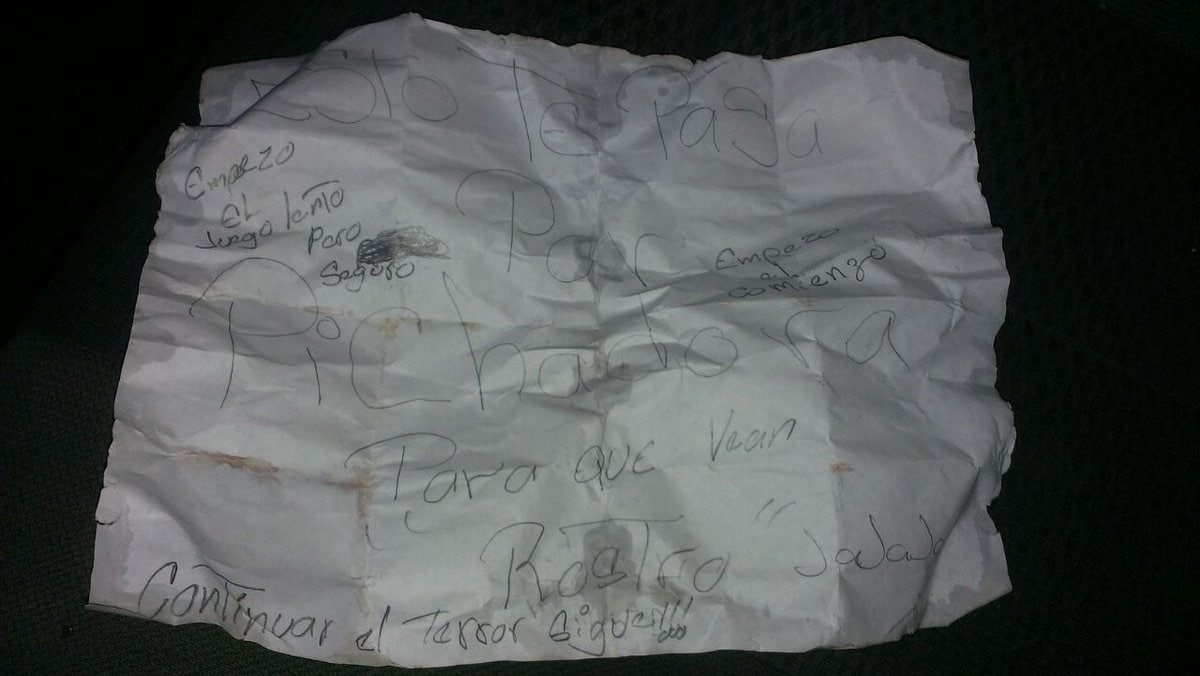 Esto Te Pasa
Por
Pichadora
Empezo
EL
Juego lento
Pero
Seguro
Empezo
comienzo
Para que Vean
Rostro "JaJaJa
Continuar el Terror sigue!!!